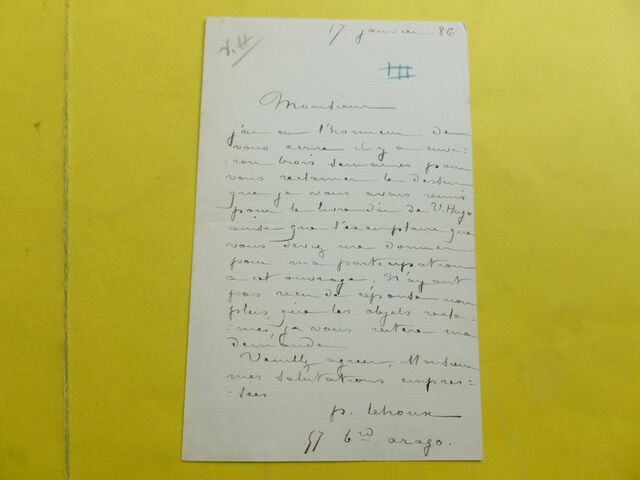 17 janvier 86
V.H
III
Monsieur
j'ai eu l'honneur de
vous ecrire il y a envi-
-ron trois semaines pour
vous reclamer le dessin
que je vous avais remis
pour le livre d'or de V. Hugo
ainsi que l'exemplaire que
vous deviez me donner
pour ma participation
a cet ouvrage. N'ayant
pas recu de reponse non
plus que les objets recla-
-més je vous reitere ma
demande
Veuillez agreer, Monsieur
mes salutations empres-
-sees
p. Lehoux
57 bd arago.